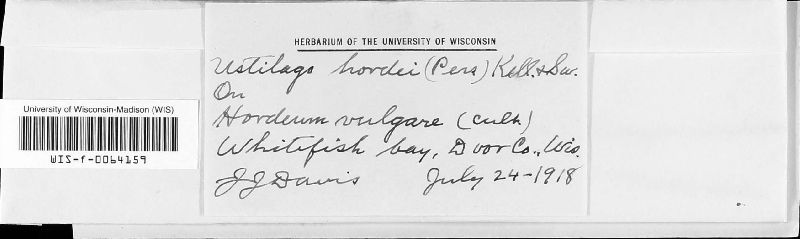 HERBARIUM OF THE UNIVERSITY OF WISCONSIN
Ustilago hordei (Pers) Kell. & Sw.
On
Hordeum vulgare (cult)
Whitefish bay, Door Co., Wis.
J J Davis July 24-1918
University of Wisconsin-Madison (WIS)
WIS-f-0064159